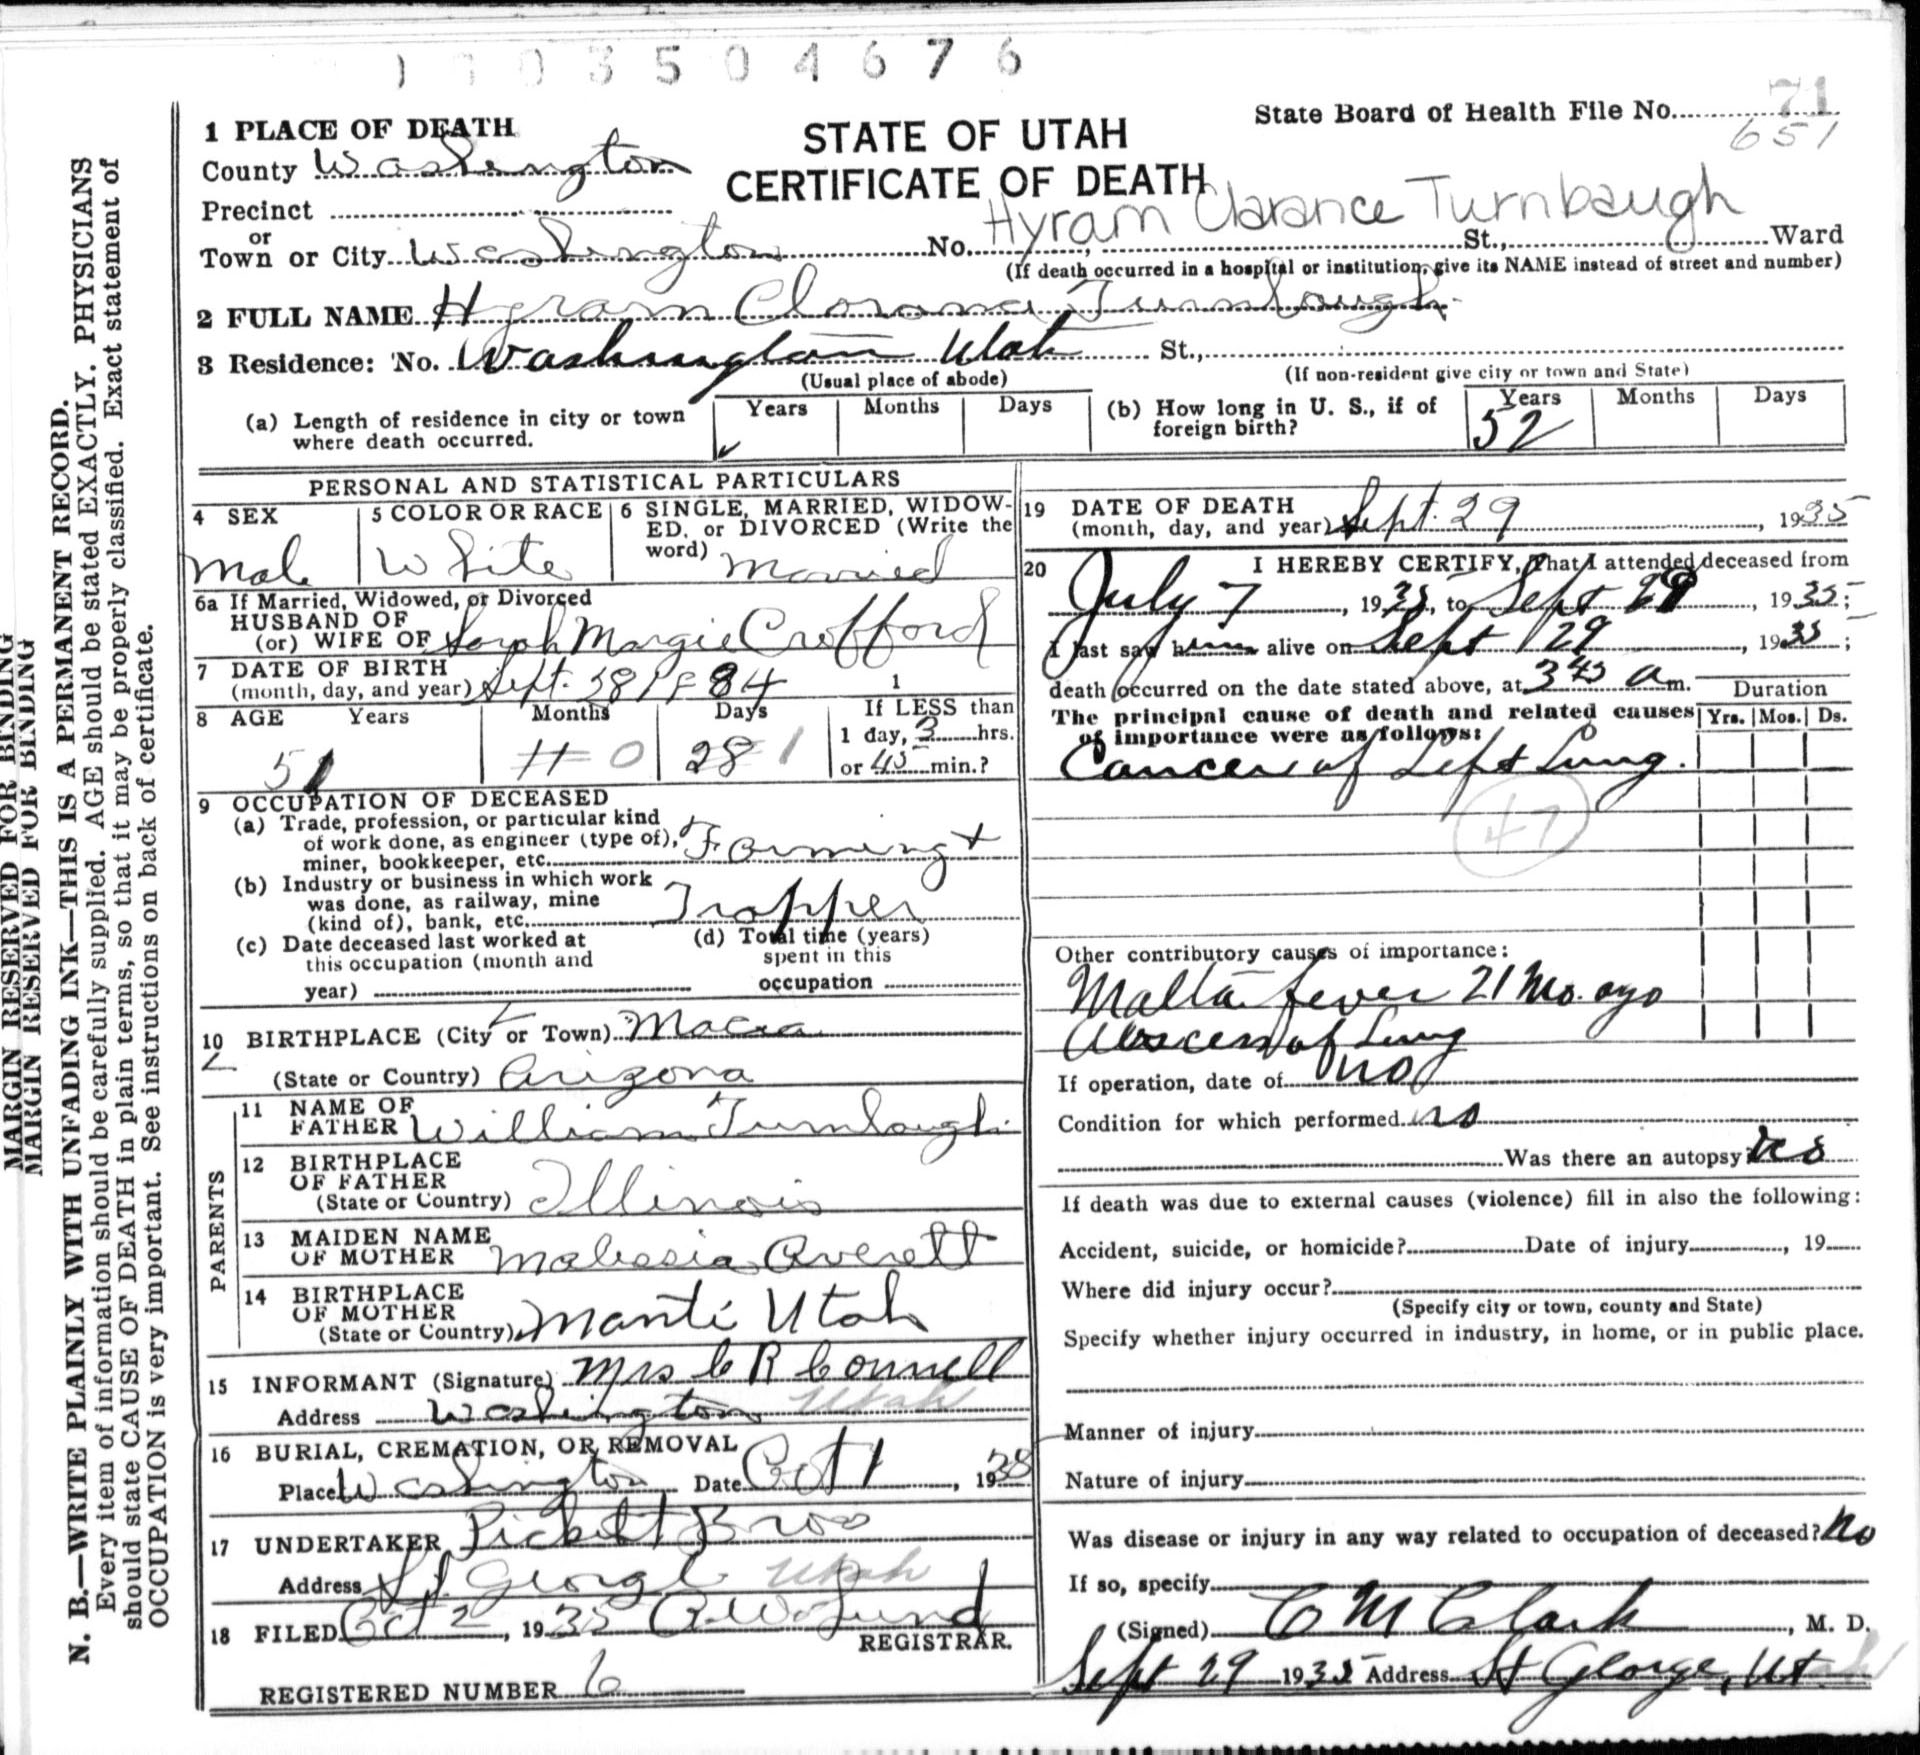 1 1 0 3 5 0 4 6 7 6
State Board of Health File No. 71
651
STATE OF UTAH
CERTIFICATE OF DEATH
1 PLACE OF DEATH
County Washington
Precinct
or
Town or City Washington No. Hyram Clarance Turnbaugh St., Ward
(If death occurred in a hospital or institution, give its NAME instead of street and number)
2 FULL NAME Hyram Clorance Turnbaugh
3 Residence: No. Washington Utah St.,
(Usual place of abode) (If non-resident give city or town and State)
(a) Length of residence in city or town where death occurred. Years Months Days
(b) How long in U. S., if of foreign birth? Years 52 Months Days
PERSONAL AND STATISTICAL PARTICULARS
4 SEX Male
5 COLOR OR RACE White
6 SINGLE, MARRIED, WIDOWED, or DIVORCED (Write the word) Married
6a If Married, Widowed, or Divorced
HUSBAND OF
(or) WIFE OF Sarah Margie Crofford
7 DATE OF BIRTH
(month, day, and year) Sept. 1884
8 AGE Years 51 Months 11 0 Days 28 1
If LESS than
1 day, 3 hrs.
or 45 min.?
9 OCCUPATION OF DECEASED
(a) Trade, profession, or particular kind
of work done, as engineer (type of),
miner, bookkeeper, etc. Farming +
(b) Industry or business in which work
was done, as railway, mine
(kind of), bank, etc. Trapper
(c) Date deceased last worked at
this occupation (month and
year)
(d) Total time (years)
spent in this
occupation
10 BIRTHPLACE (City or Town)
(State or Country) Arizona
PARENTS
11 NAME OF
FATHER William Turnbaugh
12 BIRTHPLACE
OF FATHER
(State or Country) Illinois
13 MAIDEN NAME
OF MOTHER Malissia Averett
14 BIRTHPLACE
OF MOTHER
(State or Country) Manti Utah
15 INFORMANT (Signature) Mrs C R Connell
Address Washington Utah
16 BURIAL, CREMATION, OR REMOVAL
Place Washington Date Oct 1, 1935
17 UNDERTAKER Pickett Bros
Address St. George Utah
18 FILED Oct 2, 1935
REGISTRAR.
REGISTERED NUMBER 6
19 DATE OF DEATH
(month, day, and year) Sept. 29, 1935
20 I HEREBY CERTIFY, That I attended deceased from
July 7, 1935, to Sept 29, 1935;
I last saw him alive on Sept 29, 1935;
death occurred on the date stated above, at 3 45 a m.
The principal cause of death and related causes
of importance were as follows:
Duration
Yrs. Mos. Ds.
Cancer of Left Lung.
47
Other contributory causes of importance:
Malta fever 21 Mo. ago
Abscess of Lung
If operation, date of no
Condition for which performed no
Was there an autopsy?
If death was due to external causes (violence) fill in also the following:
Accident, suicide, or homicide? Date of injury, 19
Where did injury occur?
(Specify city or town, county and State)
Specify whether injury occurred in industry, in home, or in public place.
Manner of injury
Nature of injury
Was disease or injury in any way related to occupation of deceased? No
If so, specify
(Signed) C M Clark, M. D.
Sept 29 1935 Address St George, Utah
MARGIN RESERVED FOR BINDING
MARGIN RESERVED FOR BINDING
N. B.—WRITE PLAINLY WITH UNFADING INK—THIS IS A PERMANENT RECORD.
Every item of information should be carefully supplied. AGE should be stated EXACTLY. PHYSICIANS
should state CAUSE OF DEATH in plain terms, so that it may be properly classified. Exact statement of
OCCUPATION is very important. See instructions on back of certificate.